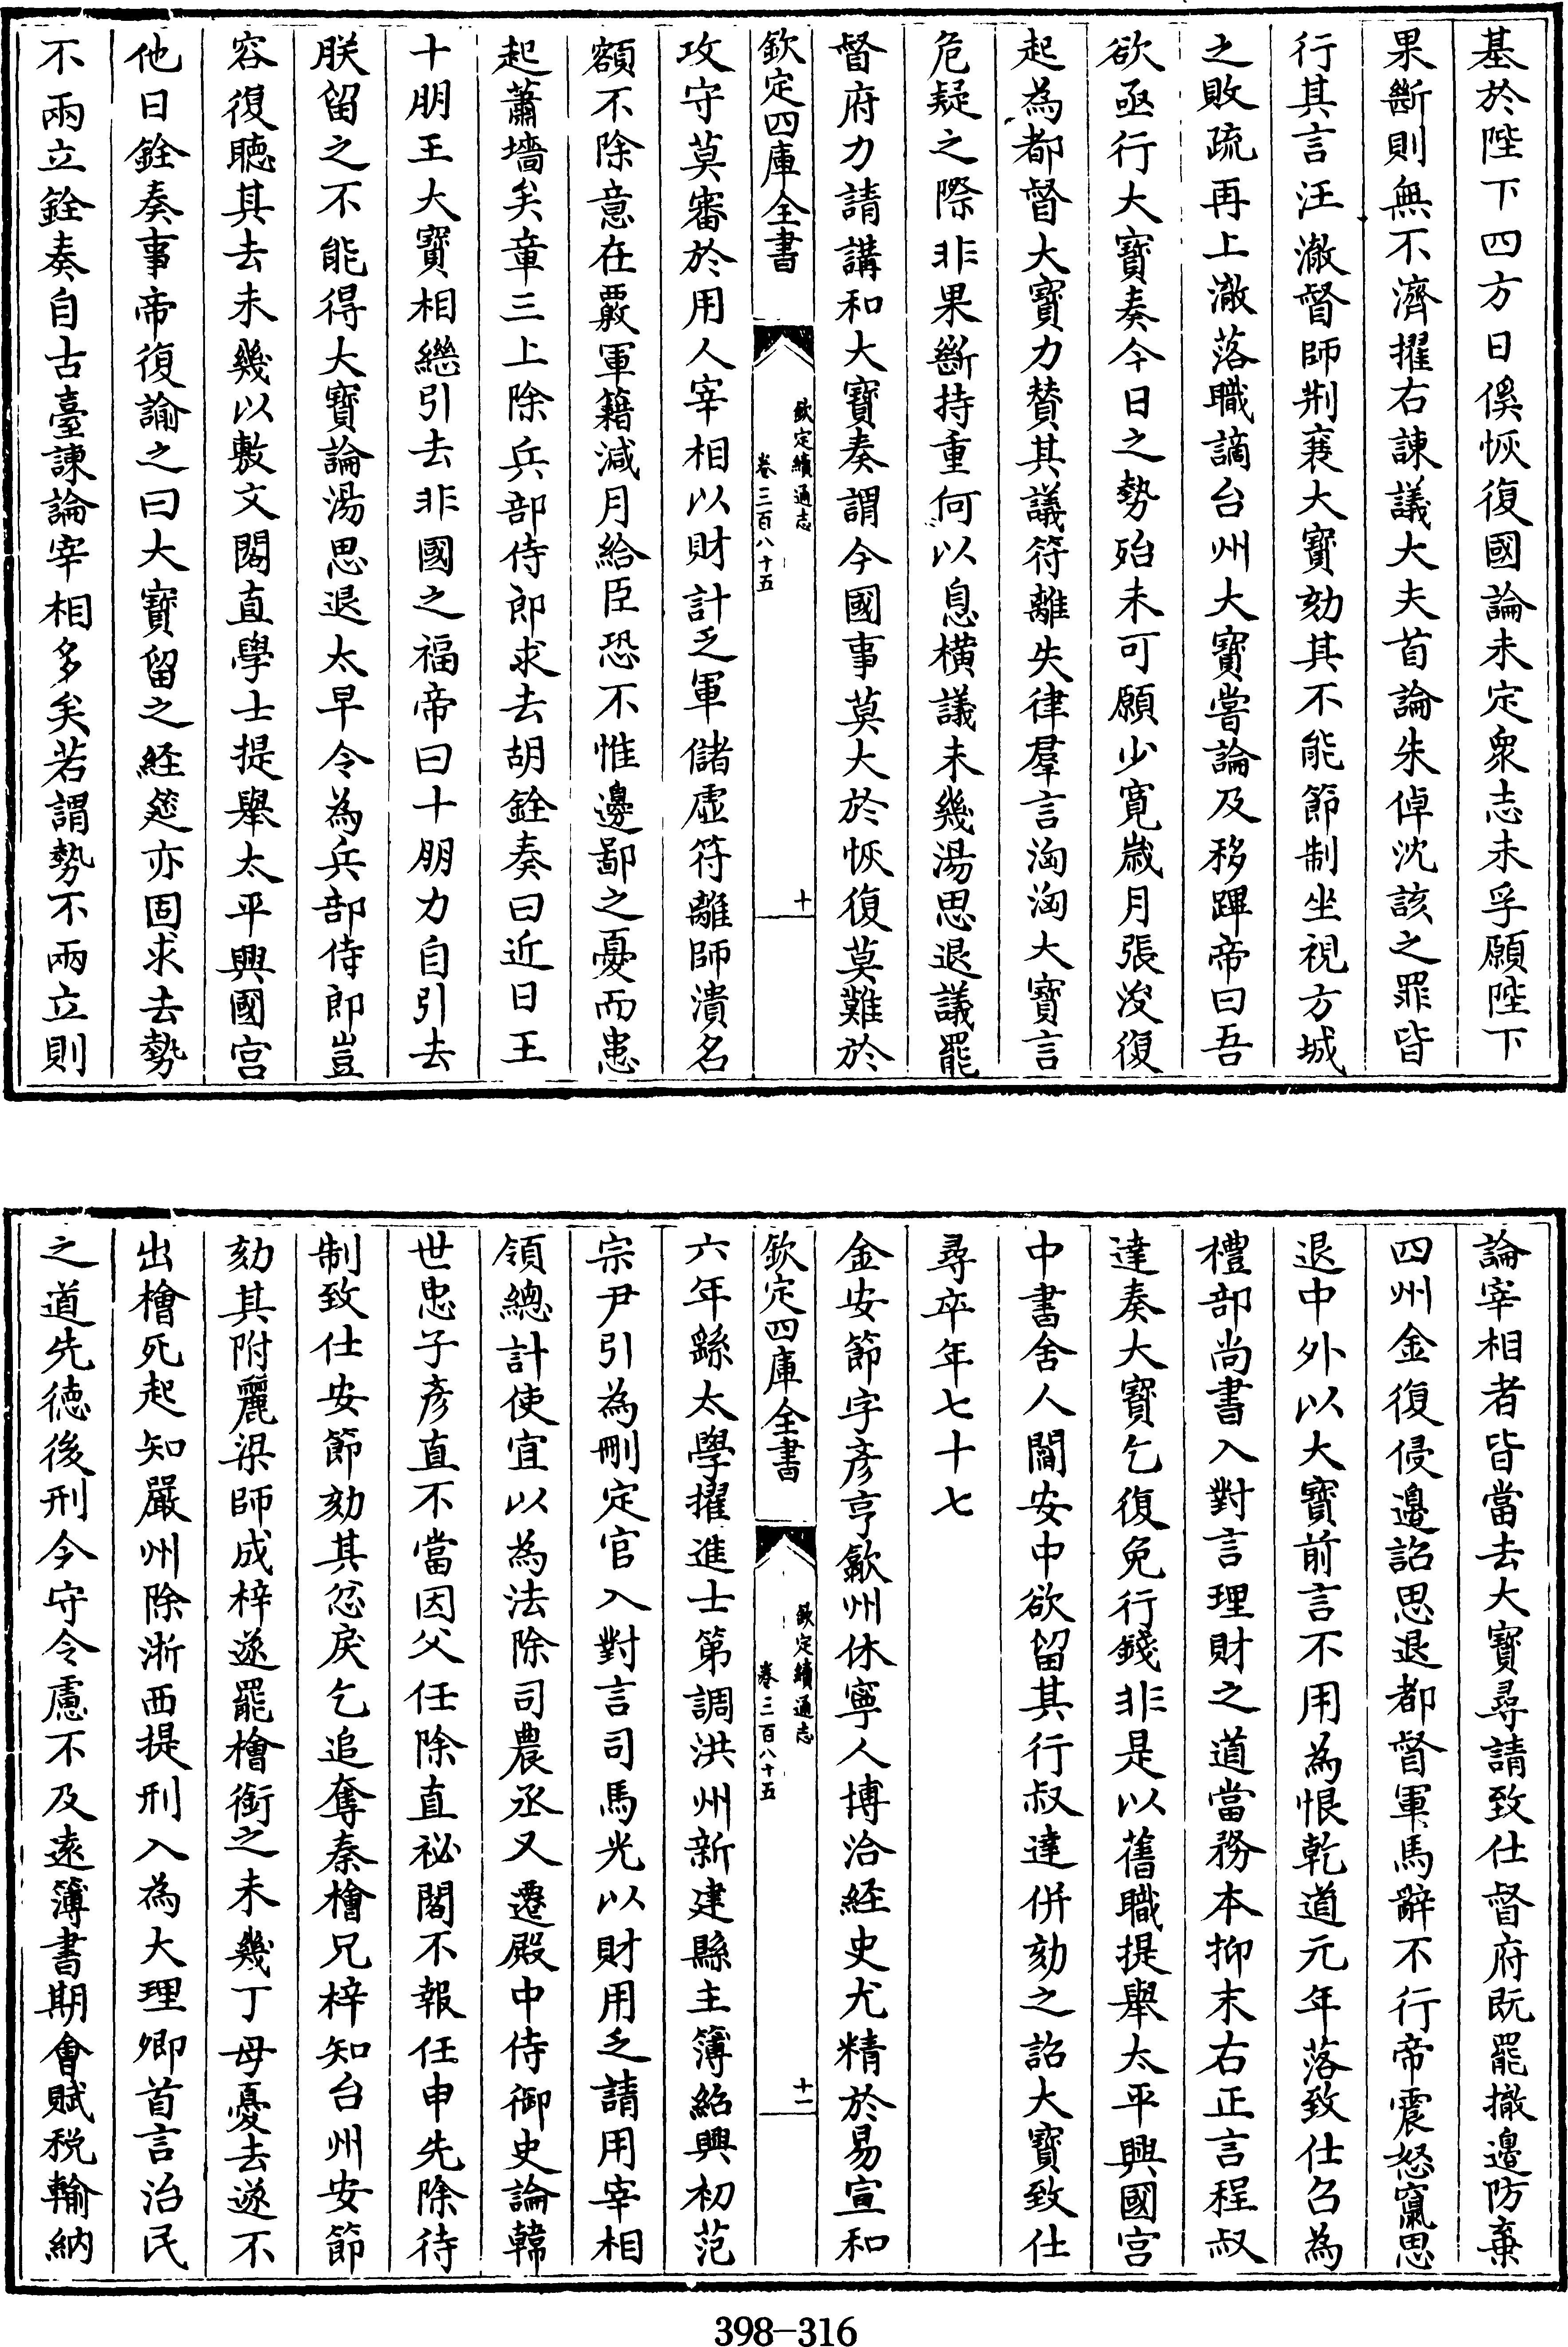 基於陛下四方日徯恢復國論未定衆志未孚願陛下
果斷則無不濟擢右諫議大夫首論朱倬沈該之罪皆
行其言汪澈督師荆襄大寳劾其不能節制坐視方城
之敗疏再上澈落職謫台州大寳嘗論及移蹕帝曰吾
欲亟行大寳奏今日之勢殆未可願少寛歳月張浚復
起為都督大寳力賛其議符離失律羣言洶洶大寳言
危疑之際非果斷持重何以息横議未幾湯思退議罷
督府力請講和大寳奏謂今國事莫大於恢復莫難於
欽定四庫全書
欽定續通志
卷三百八十五
十
攻守莫審於用人宰相以財計乏軍儲虚符離師潰名
額不除意在覈軍籍減月給臣恐不惟邊鄙之憂而患
起蕭墻矣章三上除兵部侍郎求去胡銓奏曰近日王
十朋王大寳相繼引去非國之福帝曰十朋力自引去
朕留之不能得大寳論湯思退太早令為兵部侍郎豈
容復聽其去未幾以敷文閣直學士提舉太平興國宫
他日銓奏事帝復諭之曰大寳留之経筵亦固求去勢
不兩立銓奏自古臺諫論宰相多矣若謂勢不兩立則
論宰相者皆當去大寳尋請致仕督府既罷撤邉防棄
四州金復侵邉詔思退都督軍馬辭不行帝震怒竄思
退中外以大寳前言不用為恨乾道元年落致仕召為
禮部尚書入對言理財之道當務本抑末右正言程叔
達奏大寳乞復免行錢非是以舊職提舉太平興國宫
中書舍人閻安中欲留其行叔達併劾之詔大寳致仕
尋卒年七十七
金安節字彦亨歙州休寧人博洽経史尤精於易宣和
欽定四庫全書
欽定續通志
卷三百八十五
十一
六年繇太學擢進士第調洪州新建縣主簿紹興初范
宗尹引為刪定官入對言司馬光以財用乏請用宰相
領總計使宜以為法除司農丞又遷殿中侍御史論韓
世忠子彦直不當因父任除直祕閣不報任申先除待
制致仕安節劾其忿戾乞追奪秦檜兄梓知台州安節
劾其附麗梁師成梓遂罷檜銜之未幾丁母憂去遂不
出檜死起知嚴州除浙西提刑入為大理卿首言治民
之道先德後刑今守令慮不及遠簿書期會賦税輸納
398-316